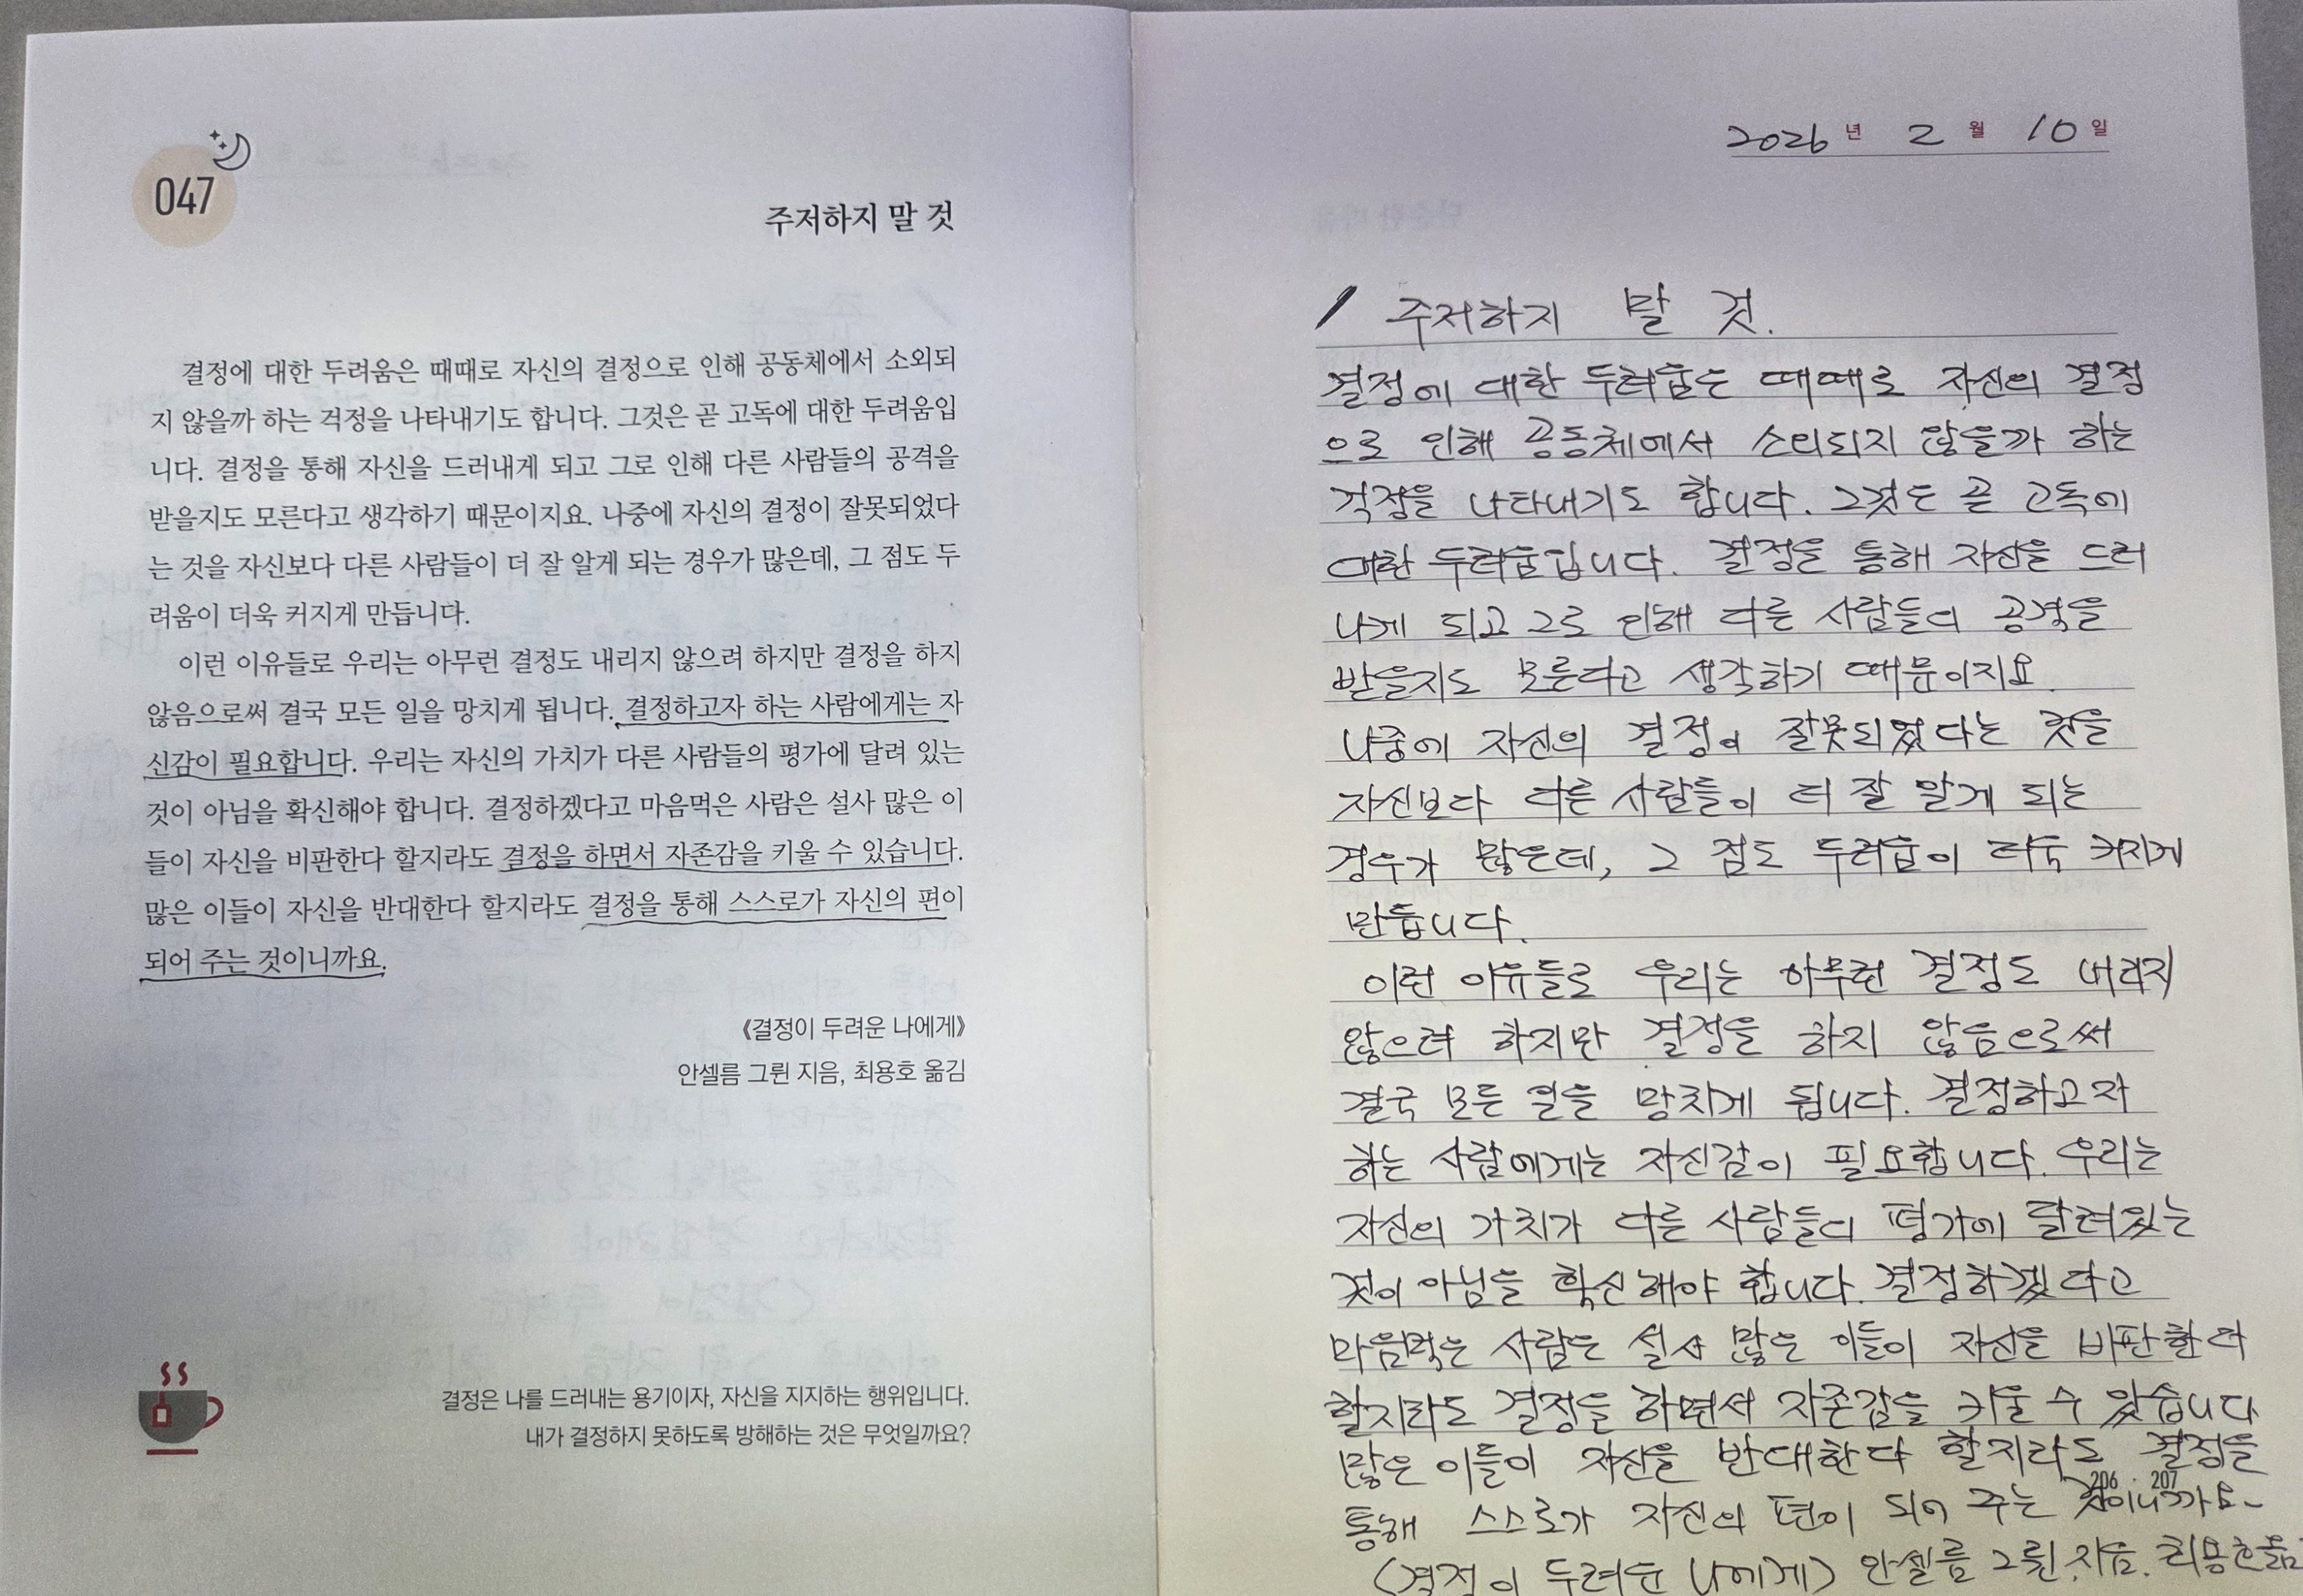 047
주저하지 말 것
결정에 대한 두려움은 때때로 자신의 결정으로 인해 공동체에서 소외되
지 않을까 하는 걱정을 나타내기도 합니다. 그것은 곧 고독에 대한 두려움입
니다. 결정을 통해 자신을 드러내게 되고 그로 인해 다른 사람들의 공격을
받을지도 모른다고 생각하기 때문이지요. 나중에 자신의 결정이 잘못되었다
는 것을 자신보다 다른 사람들이 더 잘 알게 되는 경우가 많은데, 그 점도 두
려움이 더욱 커지게 만듭니다.
이런 이유들로 우리는 아무런 결정도 내리지 않으려 하지만 결정을 하지
않음으로써 결국 모든 일을 망치게 됩니다. 결정하고자 하는 사람에게는 자
신감이 필요합니다. 우리는 자신의 가치가 다른 사람들의 평가에 달려 있는
것이 아님을 확신해야 합니다. 결정하겠다고 마음먹은 사람은 설사 많은 이
들이 자신을 비판한다 할지라도 결정을 하면서 자존감을 키울 수 있습니다.
많은 이들이 자신을 반대한다 할지라도 결정을 통해 스스로가 자신의 편이
되어 주는 것이니까요.
《결정이 두려운 나에게》
안셀름 그륀 지음, 최용호 옮김
결정은 나를 드러내는 용기이자, 자신을 지지하는 행위입니다.
내가 결정하지 못하도록 방해하는 것은 무엇일까요?
2026년 2월 10일
주저하지 말 것.
결정에 대한 두려움은 때때로 자신의 결정
으로 인해 공동체에서 소외되지 않을까 하는
걱정을 나타내기도 합니다. 그것은 곧 고독에
대한 두려움입니다. 결정을 통해 자신을 드러
나게 되고 그로 인해 다른 사람들의 공격을
받을지도 모른다고 생각하기 때문이지요.
나중에 자신의 결정이 잘못되었다는 것을
자신보다 다른 사람들이 더 잘 알게 되는
경우가 많은데, 그 점도 두려움이 더욱 커지게
만듭니다.
이런 이유들로 우리는 아무런 결정도 내리지
않으려 하지만 결정을 하지 않음으로써
결국 모든 일을 망치게 됩니다. 결정하고자
하는 사람에게는 자신감이 필요합니다. 우리는
자신의 가치가 다른 사람들의 평가에 달려있는
것이 아님을 확신해야 합니다. 결정하겠다고
마음먹은 사람은 설사 많은 이들이 자신을 비판한다
할지라도 결정을 하면서 자존감을 키울 수 있습니다
많은 이들이 자신을 반대한다 할지라도 결정을
통해 스스로가 자신의 편이 되어 주는 것이니까요-
206 · 207
(결정이 두려운 나에게) 안셀름 그륀.지음. 최용호옮김